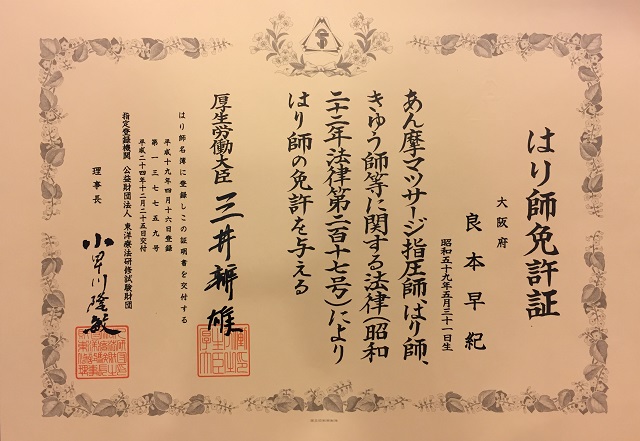 はり師免許証
大阪府
良本早紀
昭和五十九年五月三十一日生
あん摩マツサージ指圧師、はり師、
きゆう師等に関する法律(昭和
二十二年法律第二百十七号)により
はり師の免許を与える
厚生労働大臣 三井辨雄
はり師名簿に登録しこの証明書を交付する
平成十九年四月十六日登録
第一三七七五九号
平成二十四年十二月二十五日交付
指定登録機関 公益財団法人 東洋療法研修試験財団
理事長 小早川隆敏